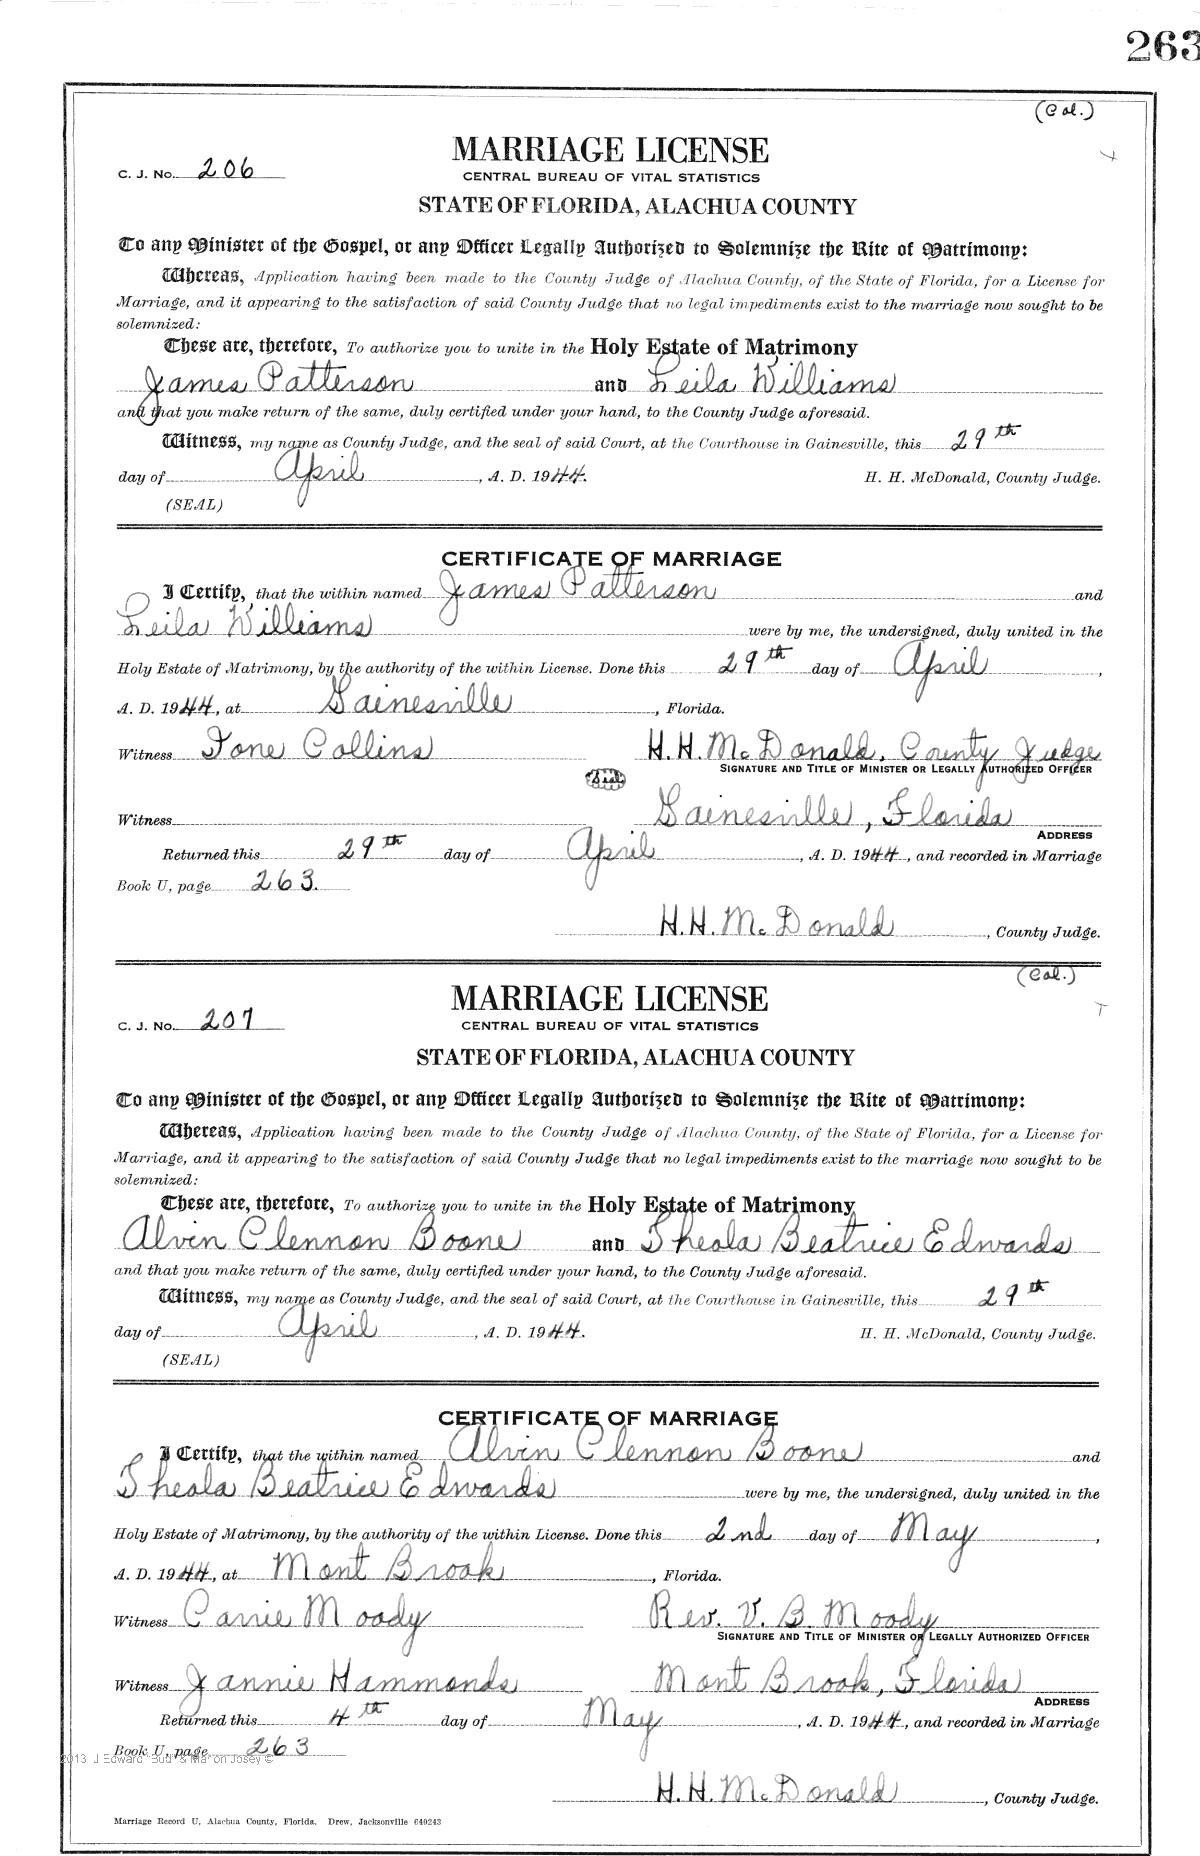 263
(Col.)
MARRIAGE LICENSE
C. J. No. 206
CENTRAL BUREAU OF VITAL STATISTICS
STATE OF FLORIDA, ALACHUA COUNTY
To any Minister of the Gospel, or any Officer Legally Authorized to Solemnize the Rite of Matrimony:
Whereas, Application having been made to the County Judge of Alachua County, of the State of Florida, for a License for
Marriage, and it appearing to the satisfaction of said County Judge that no legal impediments exist to the marriage now sought to be
solemnized:
These are, therefore, To authorize you to unite in the Holy Estate of Matrimony
James Patterson and Leila Williams
and that you make return of the same, duly certified under your hand, to the County Judge aforesaid.
Witness, my name as County Judge, and the seal of said Court, at the Courthouse in Gainesville, this 29th
day of April, A. D. 1944. H. H. McDonald, County Judge.
(SEAL)
CERTIFICATE OF MARRIAGE
I Certify, that the within named James Patterson and
Leila Williams were by me, the undersigned, duly united in the
Holy Estate of Matrimony, by the authority of the within License. Done this 29th day of April,
A. D. 1944, at Gainesville, Florida.
Witness Ione Collins H. H. McDonald, County Judge
SIGNATURE AND TITLE OF MINISTER OR LEGALLY AUTHORIZED OFFICER
Seal
Witness Gainesville, Florida
ADDRESS
Returned this 29th day of April, A. D. 1944, and recorded in Marriage
Book U, page 263.
H. H. McDonald, County Judge.
(Col.)
MARRIAGE LICENSE
C. J. No. 207
CENTRAL BUREAU OF VITAL STATISTICS
STATE OF FLORIDA, ALACHUA COUNTY
To any Minister of the Gospel, or any Officer Legally Authorized to Solemnize the Rite of Matrimony:
Whereas, Application having been made to the County Judge of Alachua County, of the State of Florida, for a License for
Marriage, and it appearing to the satisfaction of said County Judge that no legal impediments exist to the marriage now sought to be
solemnized:
These are, therefore, To authorize you to unite in the Holy Estate of Matrimony
Alvin Clennon Boone and Theola Beatrice Edwards
and that you make return of the same, duly certified under your hand, to the County Judge aforesaid.
Witness, my name as County Judge, and the seal of said Court, at the Courthouse in Gainesville, this 29th
day of April, A. D. 1944. H. H. McDonald, County Judge.
(SEAL)
CERTIFICATE OF MARRIAGE
I Certify, that the within named Alvin Clennon Boone and
Theola Beatrice Edwards were by me, the undersigned, duly united in the
Holy Estate of Matrimony, by the authority of the within License. Done this 2nd day of May,
A. D. 1944, at Mont Brook, Florida.
Witness Carrie Moody Rev. V. B. Moody
SIGNATURE AND TITLE OF MINISTER OR LEGALLY AUTHORIZED OFFICER
Witness Jannie Hammonds Mont Brook, Florida
ADDRESS
Returned this 4th day of May, A. D. 1944, and recorded in Marriage
Book U, page 263
2013 J Edward "Bud" & Marion Josey ©
H. H. McDonald, County Judge.
Marriage Record U, Alachua County, Florida. Drew, Jacksonville 640243